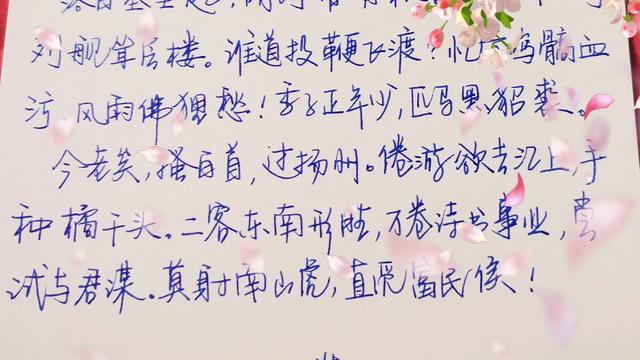 落日塞尘起,
列舰耸层楼。谁道投鞭飞渡?忆昔鸣髇血
污,风雨佛狸愁!季子正年少,匹马黑貂裘。
今老矣,搔白首,过扬州。倦游欲去江上,手
种橘千头。二客东南形胜,万卷诗书事业,尝
试与君谋。莫射南山虎,直觅富民侯!